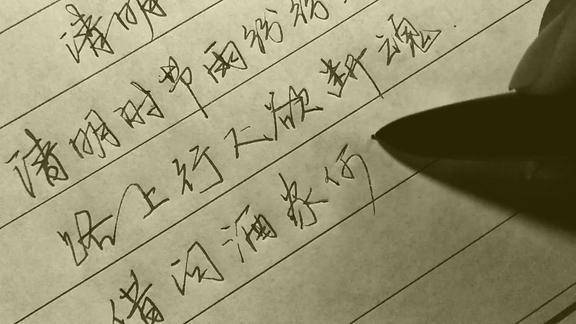 清明
清明时节雨纷纷
路上行人欲断魂
借问酒家何